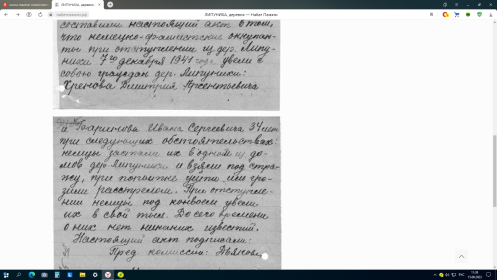 ЛИПУНИКА, деревня — Найти Лукино
составили настоящий акт в том,
что немецко-фашистские оккупан-
ты при отступлении из дер. Липу-
ники 7го декабря 1941 года увели с
собою граждан дер. Липуники:
Хренова Дмитрия Арсентьевича
и Баринова Ивана Сергеевича 34 лет
при следующих обстоятельствах:
немцы застали их в одном из до-
мов дер. Липуники и взяли под стра-
жу, при попытке уйти им гро-
зили расстрелом. При отступле-
нии немцы под конвоем увели
их в свой тыл. До сего времени
о них нет никаких известий.
Настоящий акт подписали:
Пред. комиссии: